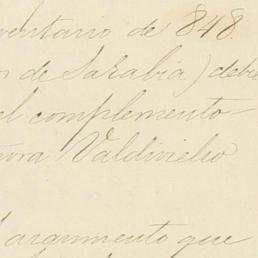 ventario de 848.
de Sarabia) debe
el complemento
Valdivielso
argumento que